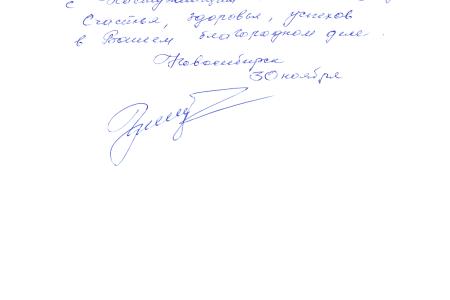 с
Счастья, здоровья, успехов
в Вашем благородном деле.
Новосибирск
30 ноября